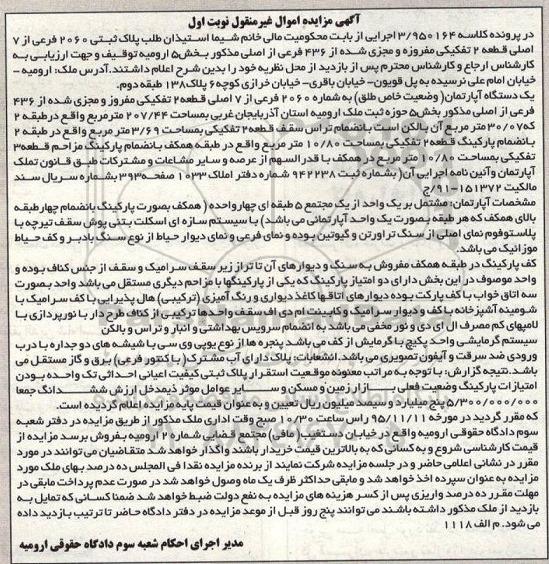 آگهی مزایده اموال غیرمنقول نوبت اول
در پرونده کلاسه ۳/۹۵۰۱۶۴ اجرایی از بابت محکومیت مالی خانم شیما استیذان طلب پلاک ثبتی ۲۰۶۰ فرعی از ۷
اصلی قطعه ۲ تفکیکی مفروزه و مجزی شده از ۴۳۶ فرعی از اصلی مذکور بخش۵ ارومیه توقیف و جهت ارزیابی به
کارشناس ارجاع و کارشناس محترم پس از بازدید از محل نظریه خود را بدین شرح اعلام داشتند.آدرس ملک: ارومیه -
خیابان امام علی نرسیده به پل قویون- خیابان باقری- خیابان خرازی کوچه۶ پلاک۱۳۸ طبقه دوم.
یک دستگاه آپارتمان( وضعیت خاص طلق) به شماره ۲۰۶۰ فرعی از ۷ اصلی قطعه۲ تفکیکی مفروز و مجزی شده از ۴۳۶
فرعی از اصلی مذکور بخش۵ حوزه ثبت ملک ارومیه استان آذربایجان غربی بمساحت ۲۰۷/۴۴ مترمربع واقع در طبقه ۲
که۳۰/۰۷ متر مربع آن بالکن است بانضمام تراس سقف قطعه۲ تفکیکی بمساحت ۳/۶۹ متر مربع واقع در طبقه ۲
بانضمام پارکینگ قطعه۲ تفکیکی بمساحت ۱۰/۸۰ متر مربع واقع در طبقه همکف بانضمام پارکینگ مزاحم قطعه۳
تفکیکی بمساحت ۱۰/۸۰ متر مربع در همکف با قدرالسهم از عرصه و سایر مشاعات و مشترکات طبق قانون تملک
آپارتمان و آئین نامه اجرایی آن( بشماره ثبت ۹۴۲۲۳۸ شماره دفتر املاک ۱۰۳۳ صفحه۳۹۳ بشماره سریال سند
مالکیت ۱۵۱۳۷۲-۹۱/ج
مشخصات آپارتمان: مشتمل بر یک واحد از یک مجتمع ۵ طبقه ای چهار واحده ( همکف بصورت پارکینگ بانضمام چهارطبقه
بالای همکف که هر طبقه بصورت یک واحد آپارتمانی می باشد) با سیستم سازه ای اسکلت بتنی پوش سقف تیرچه با
پلاستوفوم نمای اصلی از سنگ تراورتن و گیوتین بوده و نمای فرعی و نمای دیوار حیاط از نوع سنگ بادبر و کف حیاط
موزائیک می باشد.
کف پارکینگ در طبقه همکف مفروش به سنگ و دیوارهای آن تا تراز زیر سقف سرامیک و سقف از جنس کناف بوده و
واحد موصوف در این بخش دارای دو امتیاز پارکینگ که یکی از پارکینگها با مزاحم دیگری مستقل می باشد واحد بصورت
سه اتاق خواب با کف پارکت بوده دیوارهای اتاقها کاغذ دیواری و رنگ آمیزی (ترکیبی) هال پذیرایی با کف سرامیک با
شومینه آشپزخانه با کف و دیوار سرامیک و کابینت ام دی اف سقف واحدها ترکیبی از کناف طرح دار با نورپردازی با
لامپهای کم مصرف ال ای دی و نور مخفی می باشد به انضمام سرویس بهداشتی و انبار و تراس و بالکن
سیستم گرمایشی واحد پکیج با گرمایش از کف می باشد پنجره ها از نوع یوپی وی سی با شیشه های دو جداره با درب
ورودی ضد سرقت و آیفون تصویری می باشد. انشعابات: پلاک دارای آب مشترک( با کنتور فرعی) برق و گاز مستقل می
باشد.نتیجه گزارش: با توجه به مراتب معنونه موقعیت استقرار پلاک ثبتی کیفیت اعیانی احداثی تک واحده بودن
امتیازات پارکینگ وضعیت فعلی بازار زمین و مسکن و سایر عوامل موثر ذیمدخل ارزش ششدانگ جمعا
۵/۳۰۰/۰۰۰/۰۰۰ پنج میلیارد و سیصد میلیون ریال تعیین و به عنوان قیمت پایه مزایده اعلام گردیده است.
که مقرر گردید در مورخه ۹۵/۱۱/۱۱ راس ساعت ۱۰/۳۰ صبح وقت اداری ملک مذکور از طریق مزایده در دفتر شعبه
سوم دادگاه حقوقی ارومیه واقع در خیابان دستغیب (مافی) مجتمع قضایی شماره ۲ ارومیه بفروش برسد مزایده از
قیمت کارشناسی شروع و به کسانی که به بالاترین قیمت خریدار باشند واگذار خواهد شد متقاضیان می توانند در مورد
مقرر در نشانی اعلامی حاضر و در جلسه مزایده شرکت نمایند از برنده مزایده نقدا فی المجلس ده درصد بهای ملک مورد
مزایده به عنوان سپرده اخذ خواهد شد و مابقی حداکثر ظرف یک ماه وصول خواهد شد در صورت عدم پرداخت مابقی در
مهلت مقرر ده درصد واریزی پس از کسر هزینه های مزایده به نفع دولت ضبط خواهد شد ضمنا کسانی که تمایل به
بازدید از ملک مذکور داشته باشند می توانند پنج روز قبل از موعد مزایده در دفتر دادگاه حاضر تا ترتیب بازدید داده
می شود. م الف ۱۱۱۸
مدیر اجرای احکام شعبه سوم دادگاه حقوقی ارومیه